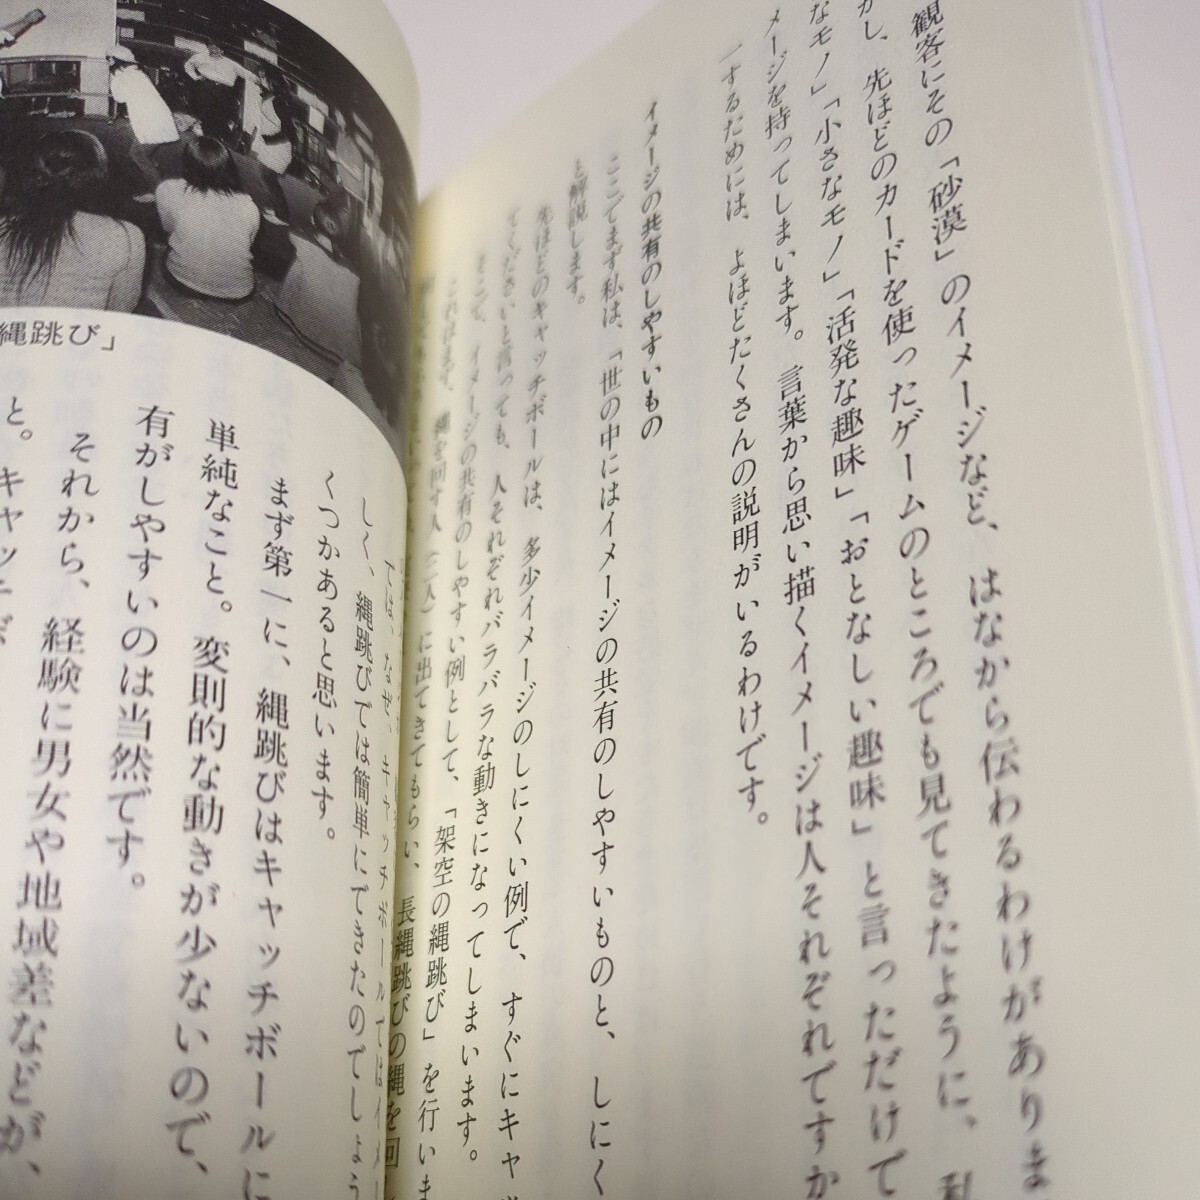 観客にその「砂漠」のイメージなど、はなから伝わるわけがありま
かし、先ほどのカードを使ったゲームのところでも見てきたように、私
なモノ」「小さなモノ」「活発な趣味」「おとなしい趣味」と言っただけで
メージを持ってしまいます。言葉から思い描くイメージは人それぞれですか
一するためには、よほどたくさんの説明がいるわけです。
イメージの共有のしやすいもの
ここでまず私は、「世の中にはイメージの共有のしやすいものと、しにく
と解説します。
先ほどのキャッチボールは、多少イメージのしにくい例で、すぐにキャッ
てくださいと言っても、人それぞれバラバラな動きになってしまいます。
そこで、イメージの共有のしやすい例として、「架空の縄跳び」を行いま
これはまず、縄を回す人（二人）に出てきてもらい、長縄跳びの縄を回
縄跳び」
では、なぜ、キャッチボールではイメ
しく、縄跳びでは簡単にできたのでしょう
くつかあると思います。
まず第一に、縄跳びはキャッチボールに
単純なこと。変則的な動きが少ないので、
有がしやすいのは当然です。
それから、経験に男女や地域差などが、
と。キャッチボ